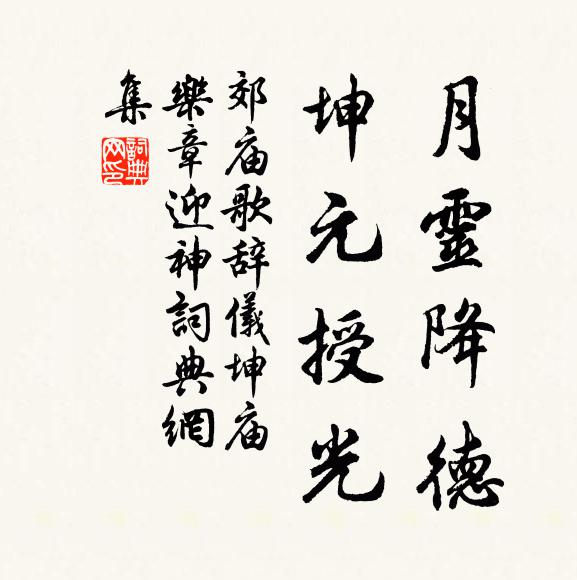 月靈降德
坤元授光
郊庙歌辞儀坤庙
樂章迎神詞典網
集
詞典網印